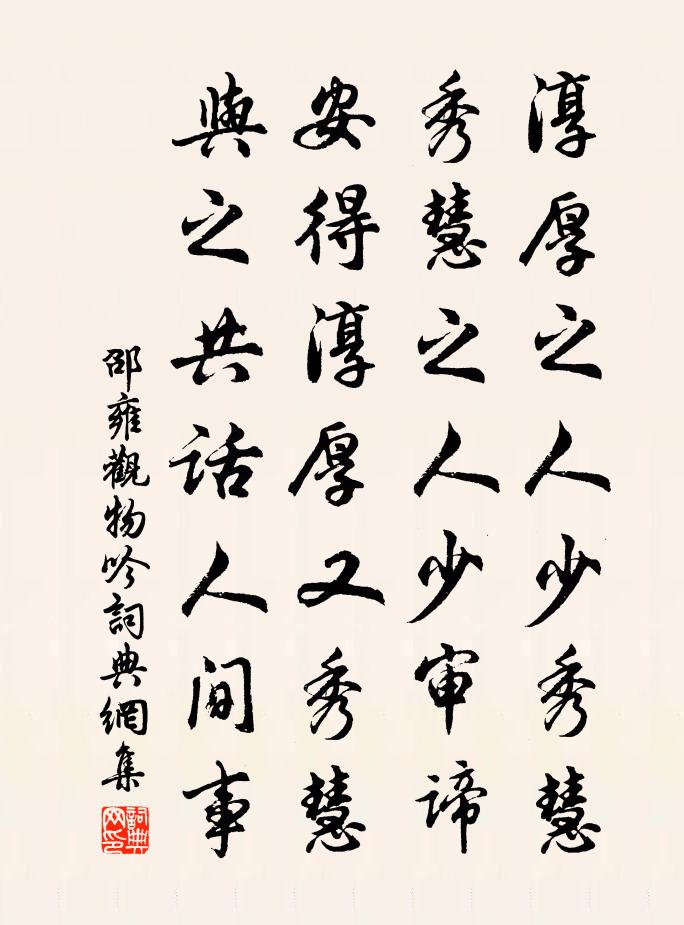 淳厚之人少秀慧
秀慧之人少审諦
安得淳厚又秀慧
與之共話人間事
邵雍觀物吟詞典網集
詞典网印